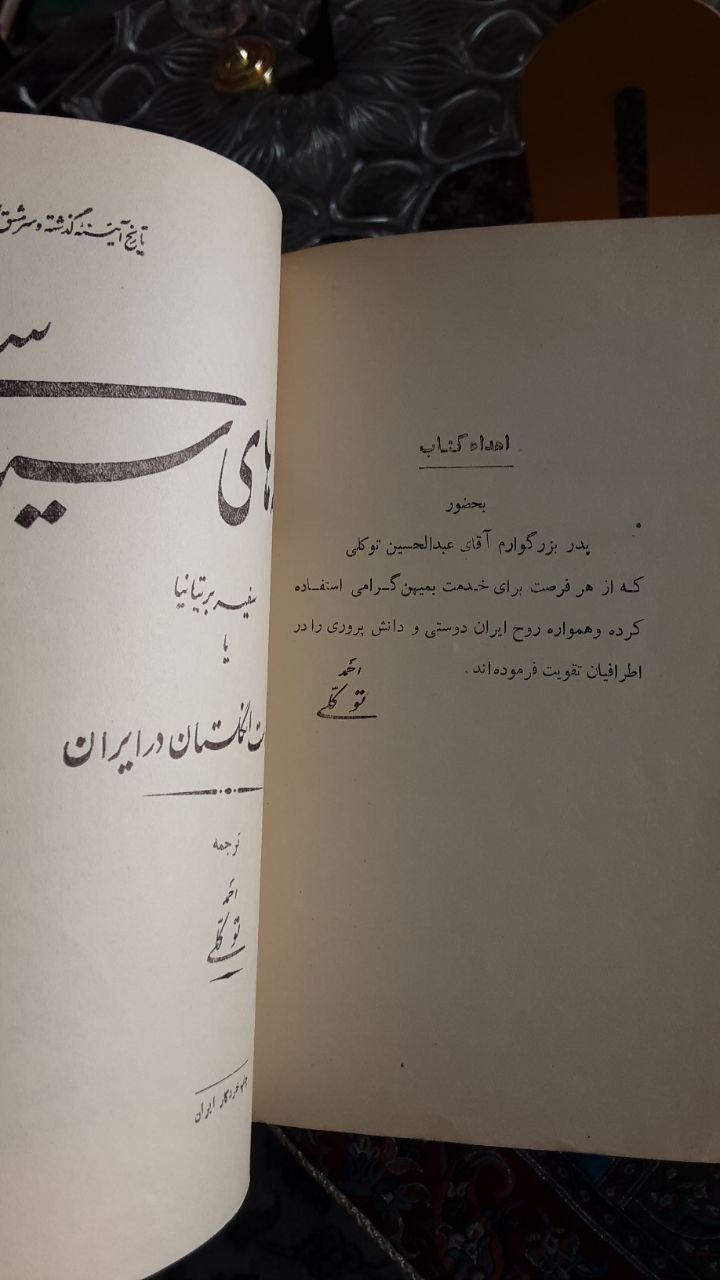 اهداء کتاب
بحضور
پدر بزرگوارم آقای عبدالحسین توکلی
که از هر فرصت برای خدمت بمیهن گرامی استفاده
کرده وهمواره روح ایران دوستی و دانش پروری را در
اطرافیان تقویت فرموده‌اند.
احمد
توکلی
تاریخ آیینه گذشته و سرمشق
های
سفیر بریتانیا
یا
انگلستان در ایران
ترجمه
احمد
توکلی
ایران